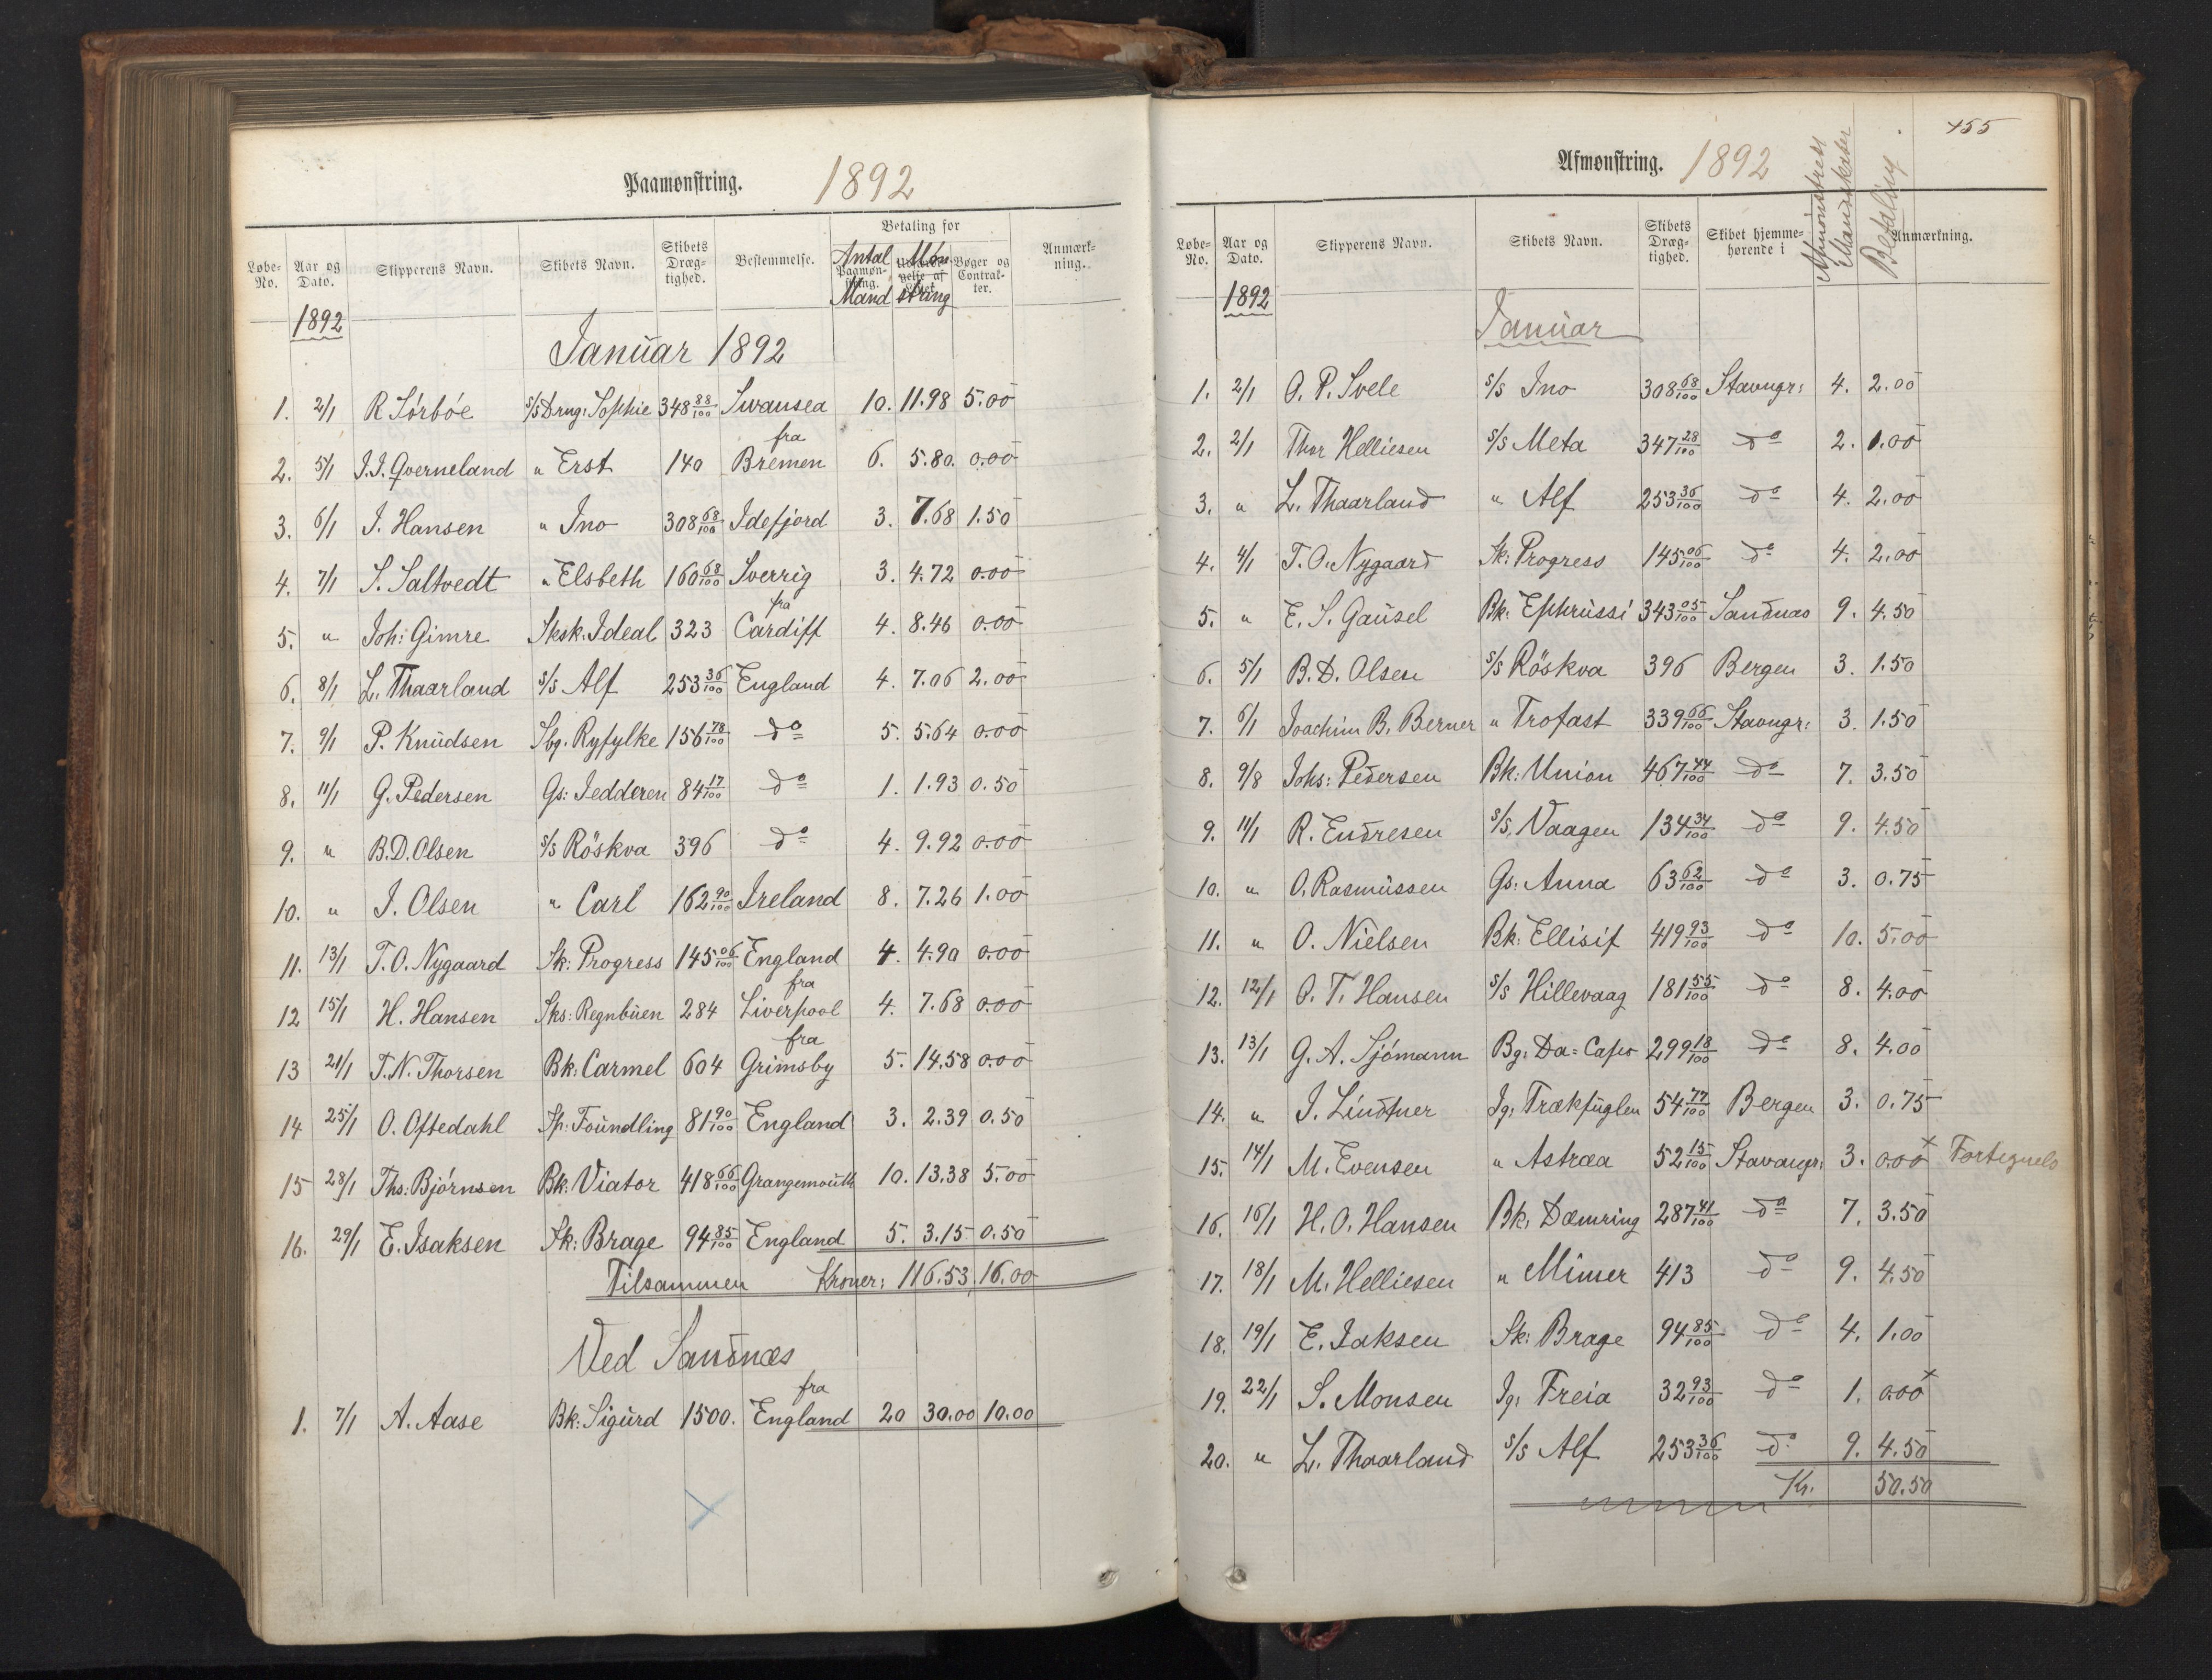 Paamønstring. 1892
Løbe-No. Aar og Dato. Skipperens Navn. Skibets Navn. Skibets Dræg-tighed. Bestemmelse. Betaling for Antal Mand Møn string Bøger og Contrak-ter. Anmærk-ning.
1892
Januar 1892
1. 2/1 R Sörböe S/S Drng: Sophie 348 88/100 Swansea 10. 11.98 5.00
2. 5/1 J.J. Qverneland " Erst 140 fra Bremen 6. 5.80. 0.00
3. 6/1 J. Hansen " Ino 308 68/100 Idefjord 3. 7.68 1.50
4. 7/1 S. Saltvedt " Elsbeth 160 68/100 Sverrig 3. 4.72 0.00
5. " Joh: Gimre Sksk. Ideal 323 fra Cardiff 4. 8.46 0.00
6. 8/1 L. Thaarland S/S Alf 253 36/100 England 4. 7.06 2.00
7. 9/1 P. Knudsen Sbg. Ryfylke 156 78/100 do 5. 5.64 0.00
8. 11/1 G. Pedersen Gs: Jedderen 84 17/100 do 1. 1.93 0.50
9. " B.D. Olsen S/S Röskva 396 do 4. 9.92 0.00
10. " J. Olsen " Carl 162 90/100 Ireland 8. 7.26 1.00
11. 13/1 T.O. Nygaard Sk: Progress 145 06/100 England 4. 4.90 0.00
12 15/1 H. Hansen Sks: Regnbuen 284 fra Liverpool 4. 7.68 0.00
13 21/1 T.N. Thorsen Bk. Carmel 604 fra Grimsby 5. 14.58 0.00
14 25/1 O. Oftedahl Sp: Foundling 81 90/100 England 3. 2.39 0.50
15 28/1 Ths: Bjørnsen Bk: Viator 418 66/100 Grangemouth 10. 13.38 5.00
16. 29/1 E. Isaksen Sk: Brage 94 85/100 England 5. 3.15 0.50
Tilsammen Kroner: 116.53 16.00
Ved Sandnæs
1. 7/1 A. Aase Bk: Sigurd 1500. fra England 20 30.00 10.00
455
Afmønstring. 1892
Løbe-No. Aar og Dato. Skipperens Navn. Skibets Navn. Skibets Dræg-tighed. Skibet hjemme-hørende i Afmönstrede Mandskaber Betaling Anmærkning.
1892
Januar
1. 2/1 O. P. Svele S/S Ino 308 68/100 Stavngr: 4. 2.00
2. 2/1 Thor Helliesen S/S Meta 347 28/100 do 2. 1.00
3. " L. Thaarland " Alf 253 36/100 do 4. 2.00
4. 4/1 T. O. Nygaard Sk: Progress 145 06/100 do 4. 2.00
5. " E. S. Gausel Bk: Ephrussi 343 05/100 Sandnæs 9. 4.50
6. 5/1 B. D. Olsen S/S Röskva 396 Bergen 3. 1.50
7. 6/1 Joachim B. Berner " Trofast 339 66/100 Stavngr: 3. 1.50
8. 9/8 Johs: Pedersen Bk: Union 467 44/100 do 7. 3.50
9. 11/1 R. Endresen S/S. Vaagen 134 34/100 do 9. 4.50
10. " O. Rasmussen Gs: Anna 63 62/100 do 3. 0.75
11. " O. Nielsen Bk: Ellisif 419 93/100 do 10. 5.00
12. 12/1 O. T. Hansen S/S Hillevaag 181 55/100 do 8. 4.00
13. 13/1 G. A. Sjömann Bg: Da=Capo 299 18/100 do 8. 4.00
14. " J. Lindtner Jg: Trækfuglen 54 77/100 Bergen 3. 0.75
15. 14/1 M. Evensen " Astræa 52 15/100 Stavangr: 3. 0.00 x
16. 16/1 H. O. Hansen Bk: Dæmring 287 41/100 do 7. 3.50
17. 18/1 M. Helliesen " Mimer 413 do 9. 4.50
18. 19/1 E. Isaksen Sk: Brage 94 85/100 do 4. 1.00
19. 22/1 S. Monsen Jg: Freia 32 93/100 do 1. 0.00 x
20. " L. Thaarland S/S Alf 253 36/100 do 9. 4.50
Kr. 50.50